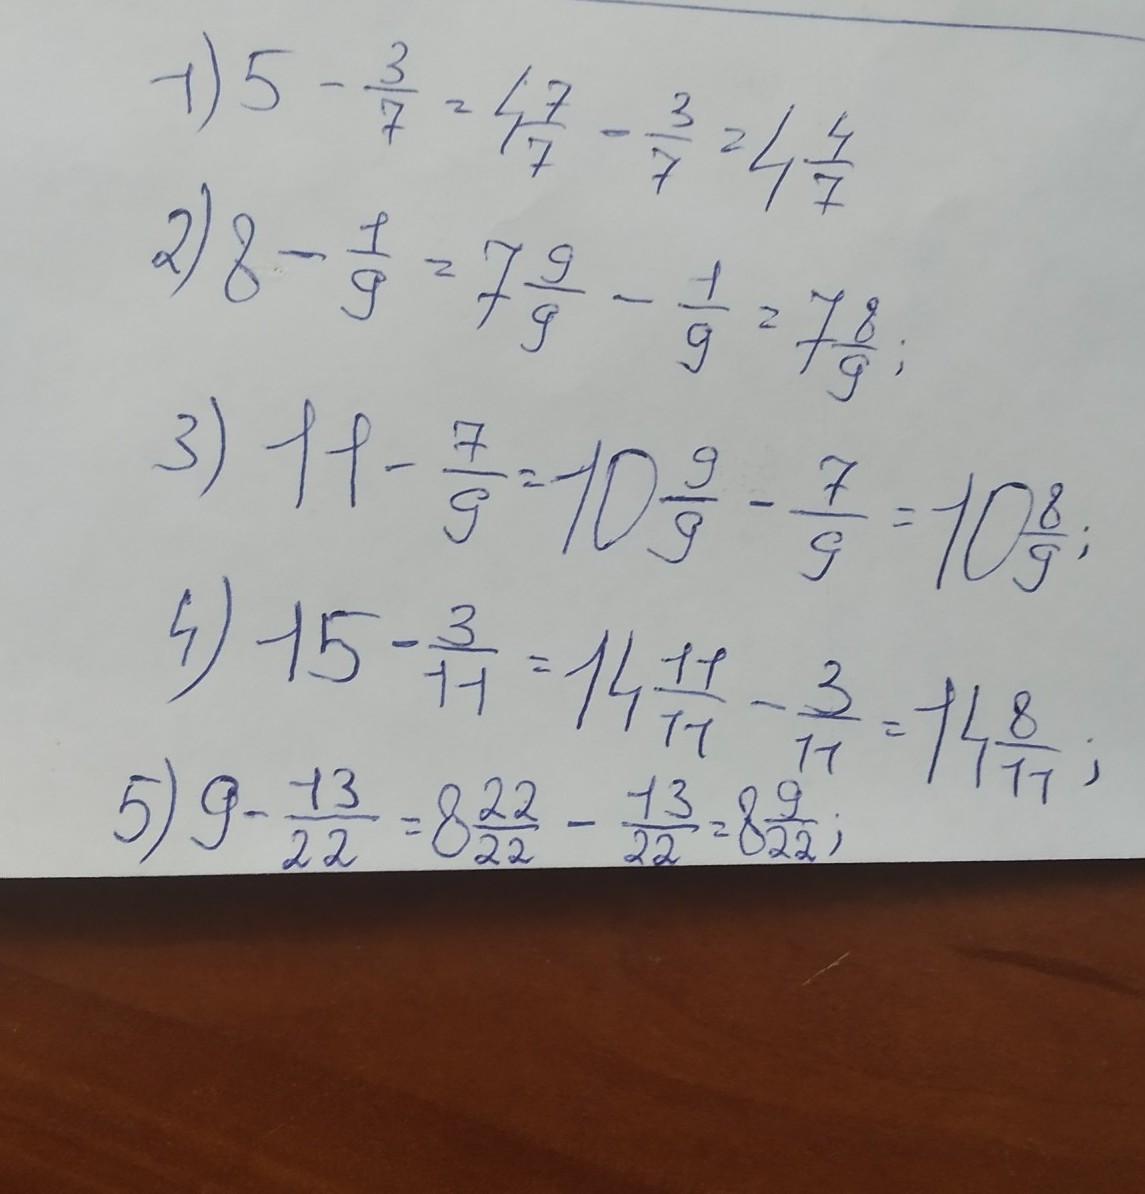 1) 5 - 3/7 = 4 7/7 - 3/7 = 4 4/7
2) 8 - 1/9 = 7 9/9 - 1/9 = 7 8/9;
3) 11 - 7/9 = 10 9/9 - 7/9 = 10 8/9;
4) 15 - 3/11 = 14 11/11 - 3/11 = 14 8/11;
5) 9 - 13/22 = 8 22/22 - 13/22 = 8 9/22;